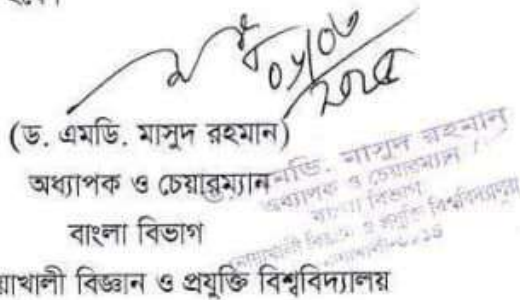 (ড. এমডি. মাসুদ রহমান)
অধ্যাপক ও চেয়ারম্যান
বাংলা বিভাগ
য়াখালী বিজ্ঞান ও প্রযুক্তি বিশ্ববিদ্যালয়
এমডি. মাসুদ রহমান
অধ্যাপক ও চেয়ারম্যান
বাংলা বিভাগ
বিজ্ঞান ও প্রযুক্তি বিশ্ববিদ্যালয়